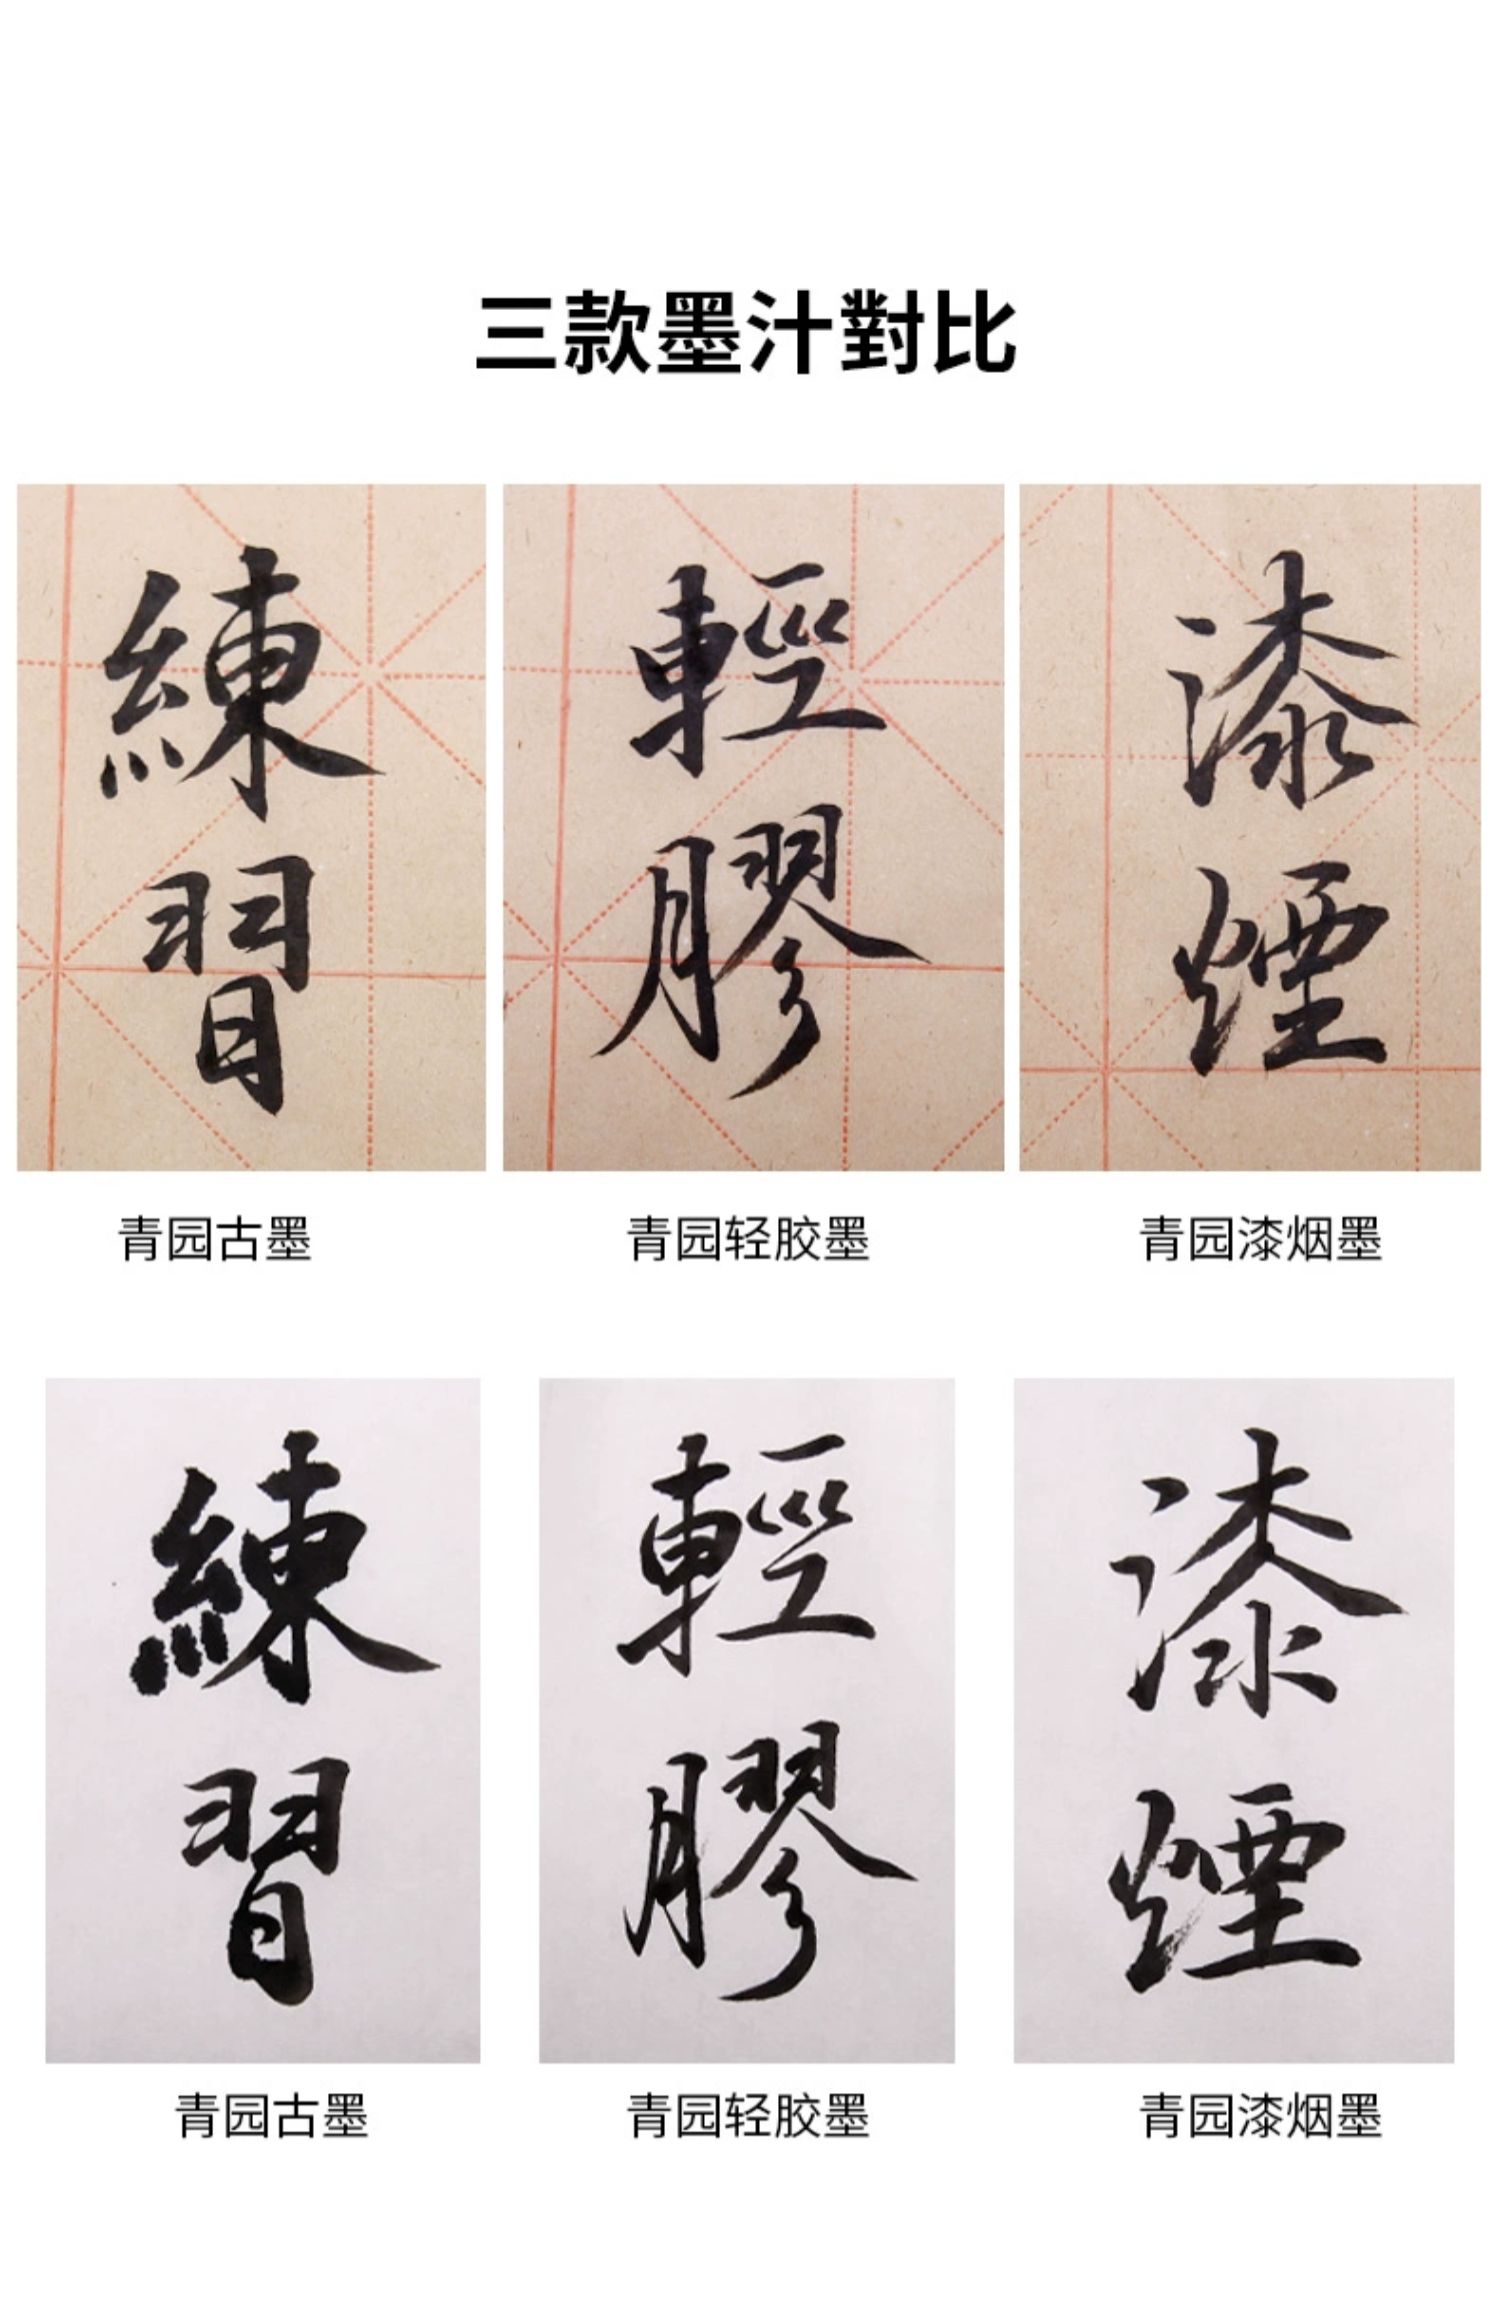 三款墨汁對比
練習
輕膠
漆煙
青园古墨
青园轻胶墨
青园漆烟墨
練習
輕膠
漆煙
青园古墨
青园轻胶墨
青园漆烟墨